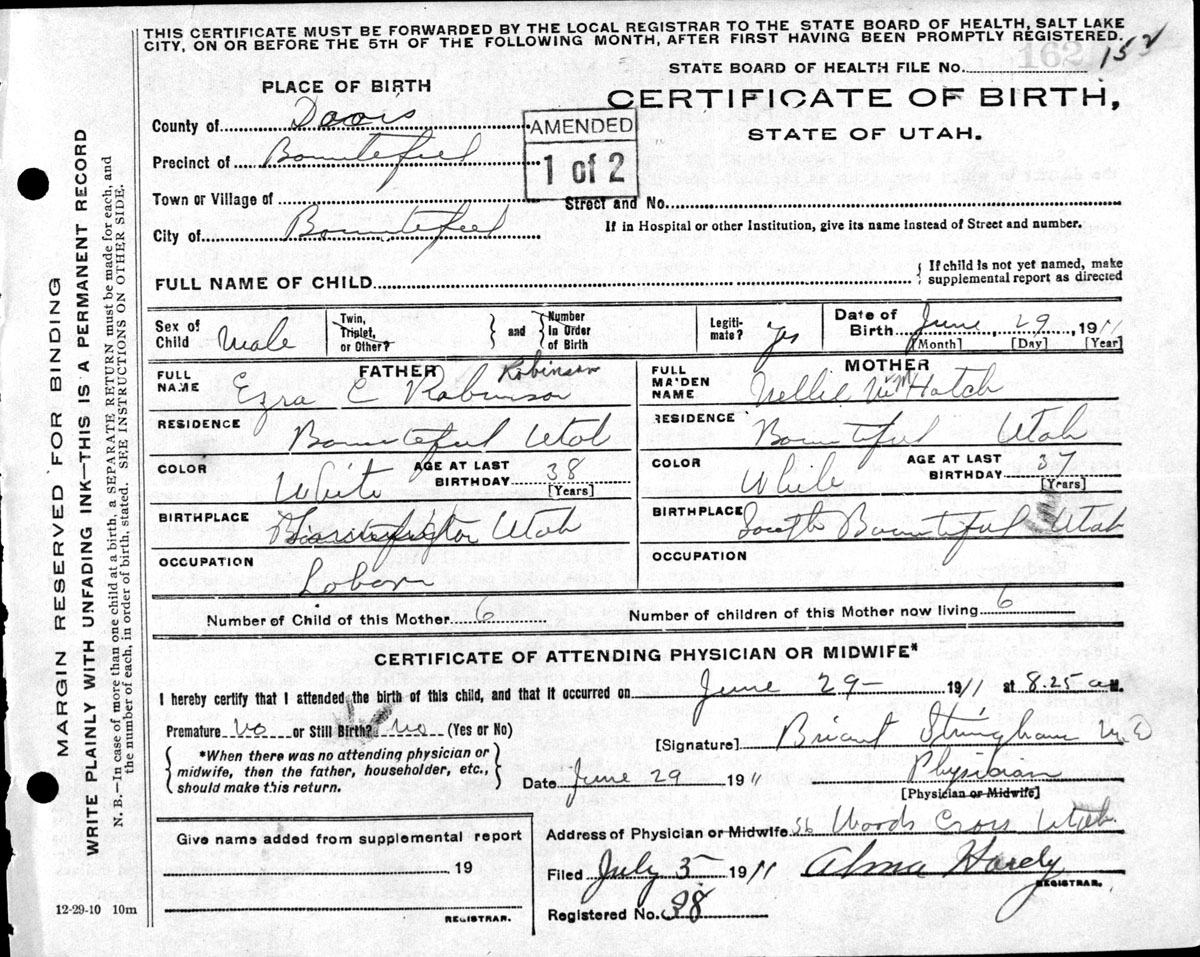 THIS CERTIFICATE MUST BE FORWARDED BY THE LOCAL REGISTRAR TO THE STATE BOARD OF HEALTH, SALT LAKE
CITY, ON OR BEFORE THE 5TH OF THE FOLLOWING MONTH, AFTER FIRST HAVING BEEN PROMPTLY REGISTERED.
162
STATE BOARD OF HEALTH FILE No. 152
PLACE OF BIRTH
CERTIFICATE OF BIRTH,
STATE OF UTAH.
County of Davis
AMENDED
1 of 2
Precinct of Bountiful
Town or Village of
Street and No.
City of Bountiful
If in Hospital or other Institution, give its name instead of Street and number.
FULL NAME OF CHILD
{ If child is not yet named, make
supplemental report as directed
Sex of Child Male
Twin, Triplet, or Other? } and { Number In Order of Birth
Legiti-mate? Yes
Date of Birth June 29, 1911
[Month] [Day] [Year]
FATHER
FULL NAME Ezra C Robinson Robinson
RESIDENCE Bounteful Utah
COLOR White AGE AT LAST BIRTHDAY 38
[Years]
BIRTHPLACE Utah
OCCUPATION Labor
MOTHER
FULL MAIDEN NAME Nellie M Hatch
RESIDENCE Bountiful Utah
COLOR White AGE AT LAST BIRTHDAY 37
[Years]
BIRTHPLACE South Bountiful Utah
OCCUPATION
Number of Child of this Mother 6 Number of children of this Mother now living 6
CERTIFICATE OF ATTENDING PHYSICIAN OR MIDWIFE*
I hereby certify that I attended the birth of this child, and that it occurred on June 29- 1911 at 8.25 a M.
Premature No or Still Birth? No (Yes or No)
{ *When there was no attending physician or
midwife, then the father, householder, etc.,
should make this return. }
[Signature] Briant Stringham M D
Date June 29 19 11 Physician
[Physician or Midwife]
Address of Physician or Midwife Woods Cross Utah
Give name added from supplemental report
19
REGISTRAR.
Filed July 5 1911 Alma Hardy
REGISTRAR.
Registered No. 38
12-29-10 10m
MARGIN RESERVED FOR BINDING
WRITE PLAINLY WITH UNFADING INK—THIS IS A PERMANENT RECORD
N. B.—In case of more than one child at a birth, a SEPARATE RETURN must be made for each, and
the number of each, in order of birth, stated. SEE INSTRUCTIONS ON OTHER SIDE.